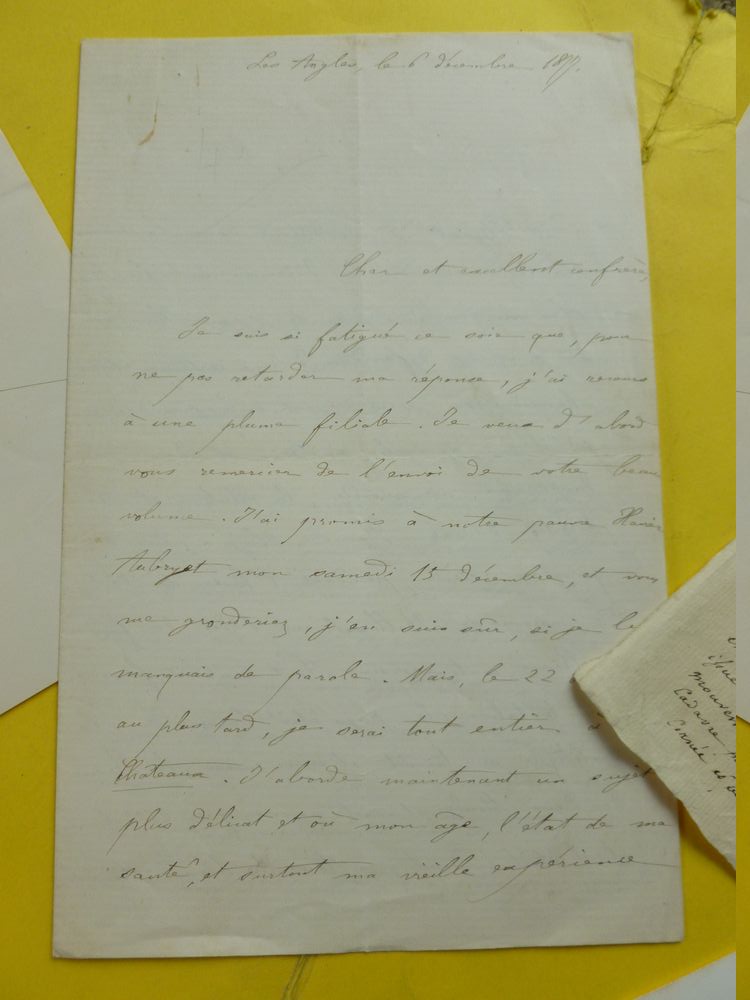 Les Angles, le 6 décembre 1877.
Cher et excellent confrère,
Je suis si fatigué ce soir que, pour
ne pas retarder ma réponse, j'ai recours
à une plume filiale. Je veux d'abord
vous remercier de l'envoi de votre beau
volume. J'ai promis à notre pauvre Xavier
Aubryet mon samedi 15 décembre, et vous
me gronderiez, j'en suis sûr, si je lui
manquais de parole. Mais, le 22
au plus tard, je serai tout entier à
Chateaux. J'aborde maintenant un sujet
plus délicat et où mon âge, l'état de ma
santé, et surtout ma vieille expérience
que
mouvem
Cadavre